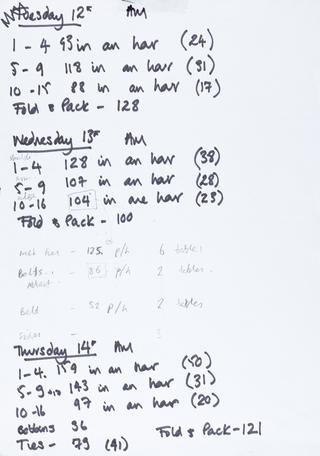 Tuesday 12th AM
1 - 4 93 in an hour (24)
5 - 9 118 in an hour (31)
10 - 15 88 in an hour (17)
Fold & Pack - 128
Wednesday 13th AM
1 - 4 128 in an hour (38)
5 - 9 107 in an hour (28)
10 - 16 104 in one hour (23)
Fold & Pack - 100
- 125. p/h 6 tables
Belts - 86 p/h 2 tables.
Belt - 52 p/h 2 tables
- 3
Thursday 14th AM
1 - 4. 159 in an hour (50)
5 - 9 +10 143 in an hour (31)
10 - 16 97 in an hour (20)
Bottoms 36 Fold & Pack - 121
Ties - 79 (41)